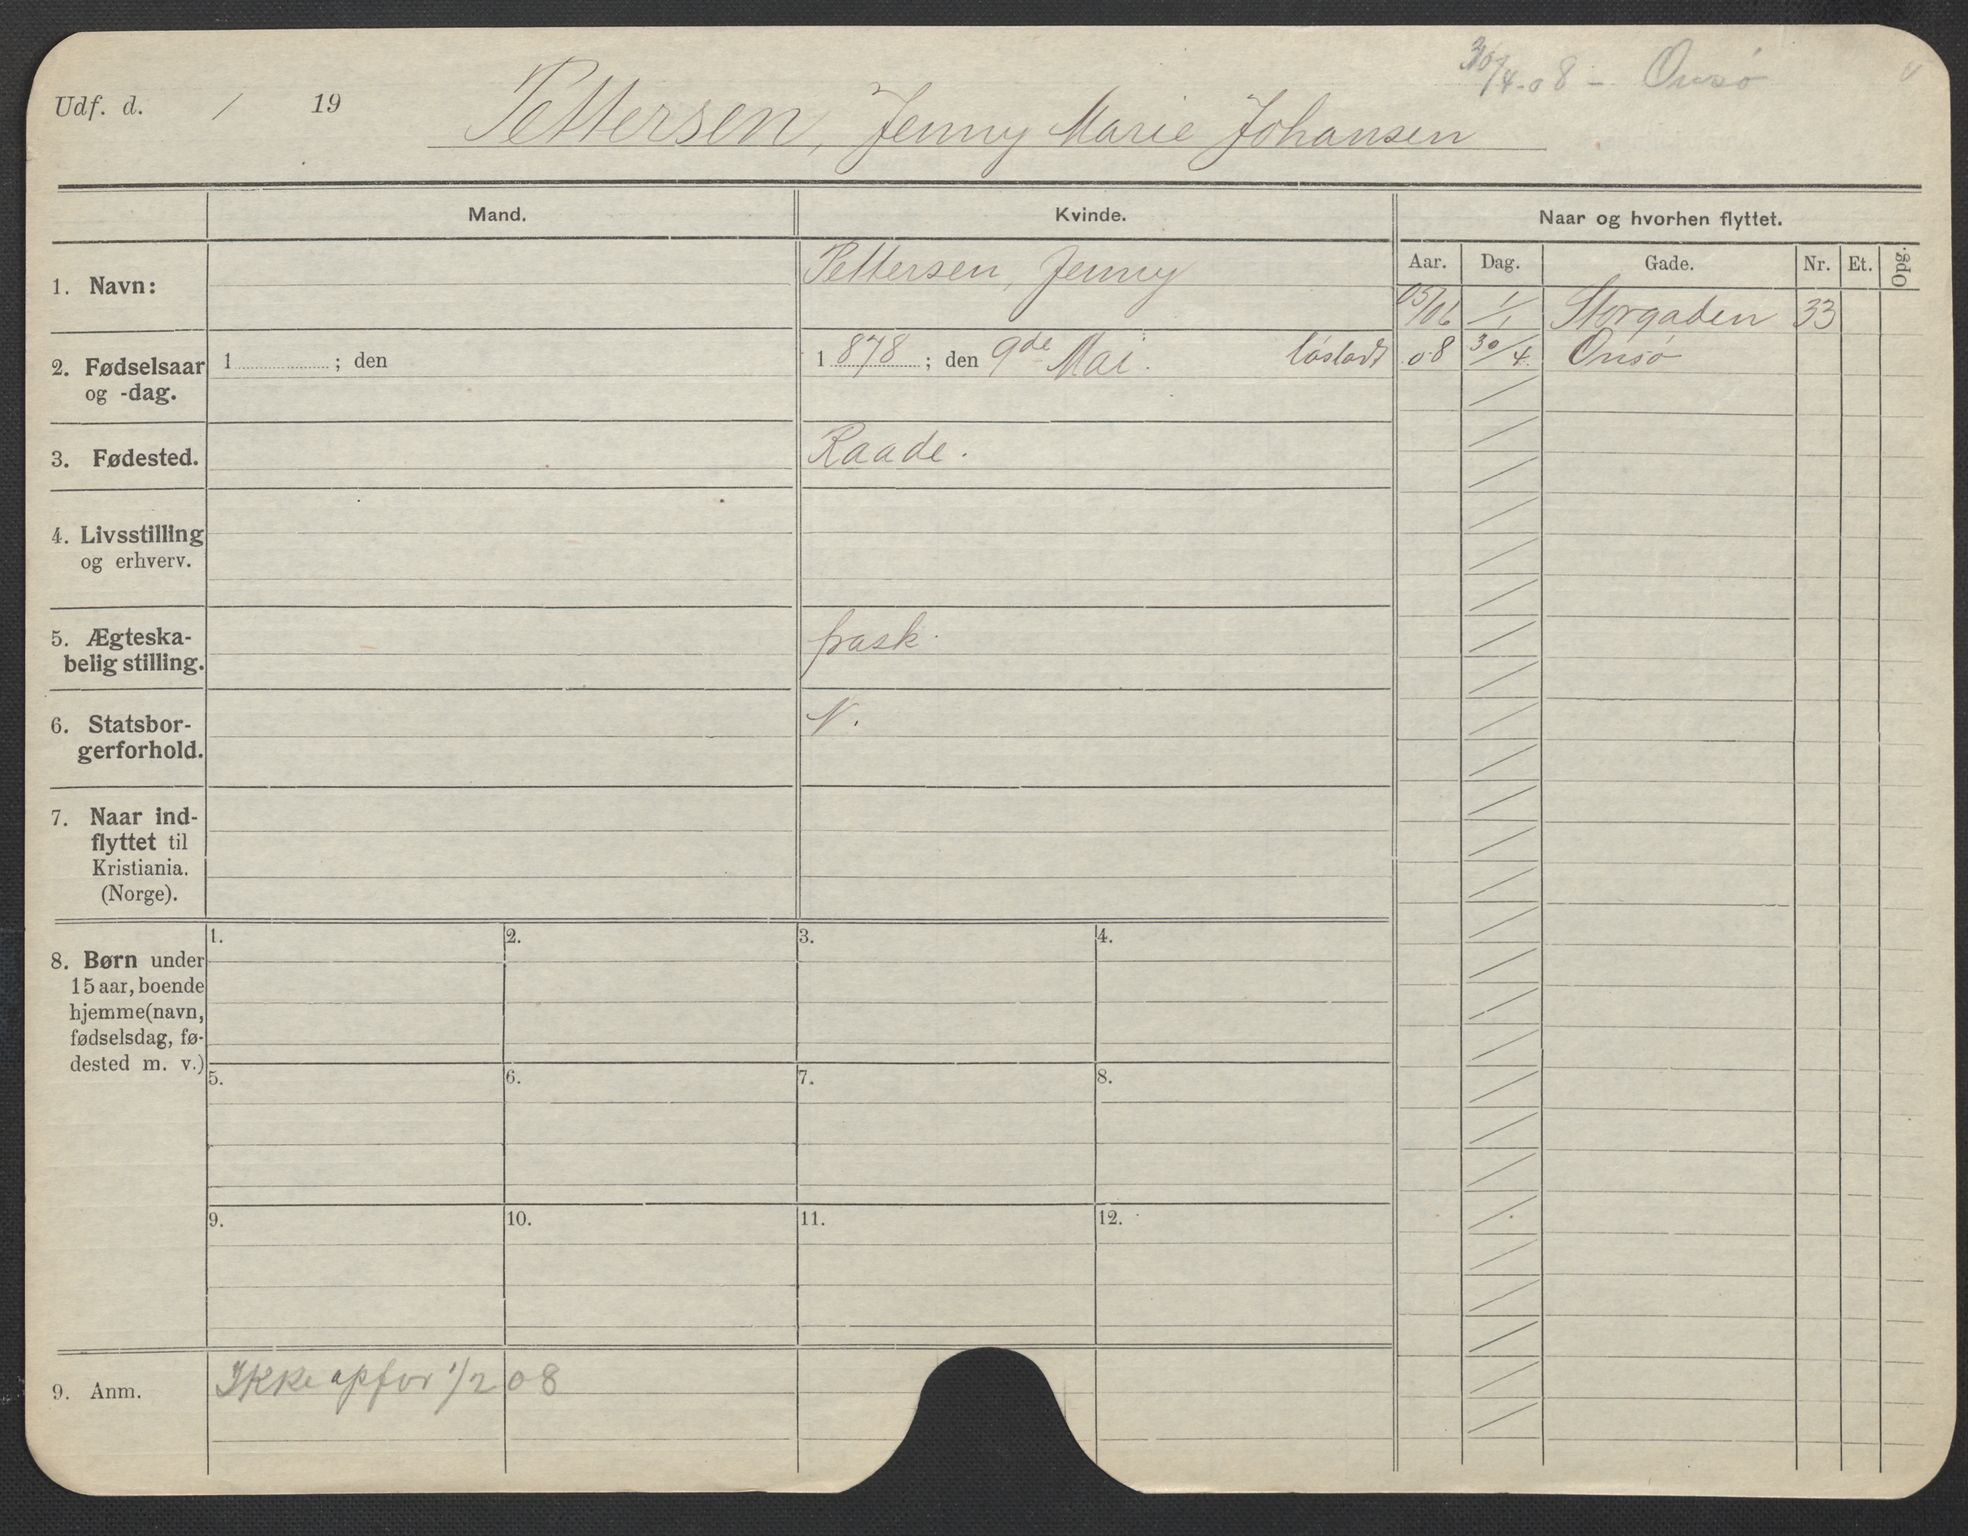 30/4-08 - Onsø
Udf. d. / 19
Pettersen, Jenny Marie Johansen
Mand. Kvinde. Naar og hvorhen flyttet.
Aar. Dag. Gade. Nr. Et. Opg.
1. Navn: Pettersen, Jenny
05/06 1/1 Storgaden 33
2. Fødselsaar og -dag. 1 ; den 1878 ; den 9de Mai.
08 30/4. Onsø
3. Fødested. Raade.
4. Livsstilling
og erhverv.
5. Ægteska-
belig stilling. frask.
6. Statsbor-
gerforhold. N.
7. Naar ind-
flyttet til
Kristiania.
(Norge).
8. Børn under
15 aar, boende
hjemme (navn,
fødselsdag, fø-
dested m. v.)
1. 2. 3. 4.
5. 6. 7. 8.
9. 10. 11. 12.
9. Anm. Ikke opfør 1/2 08